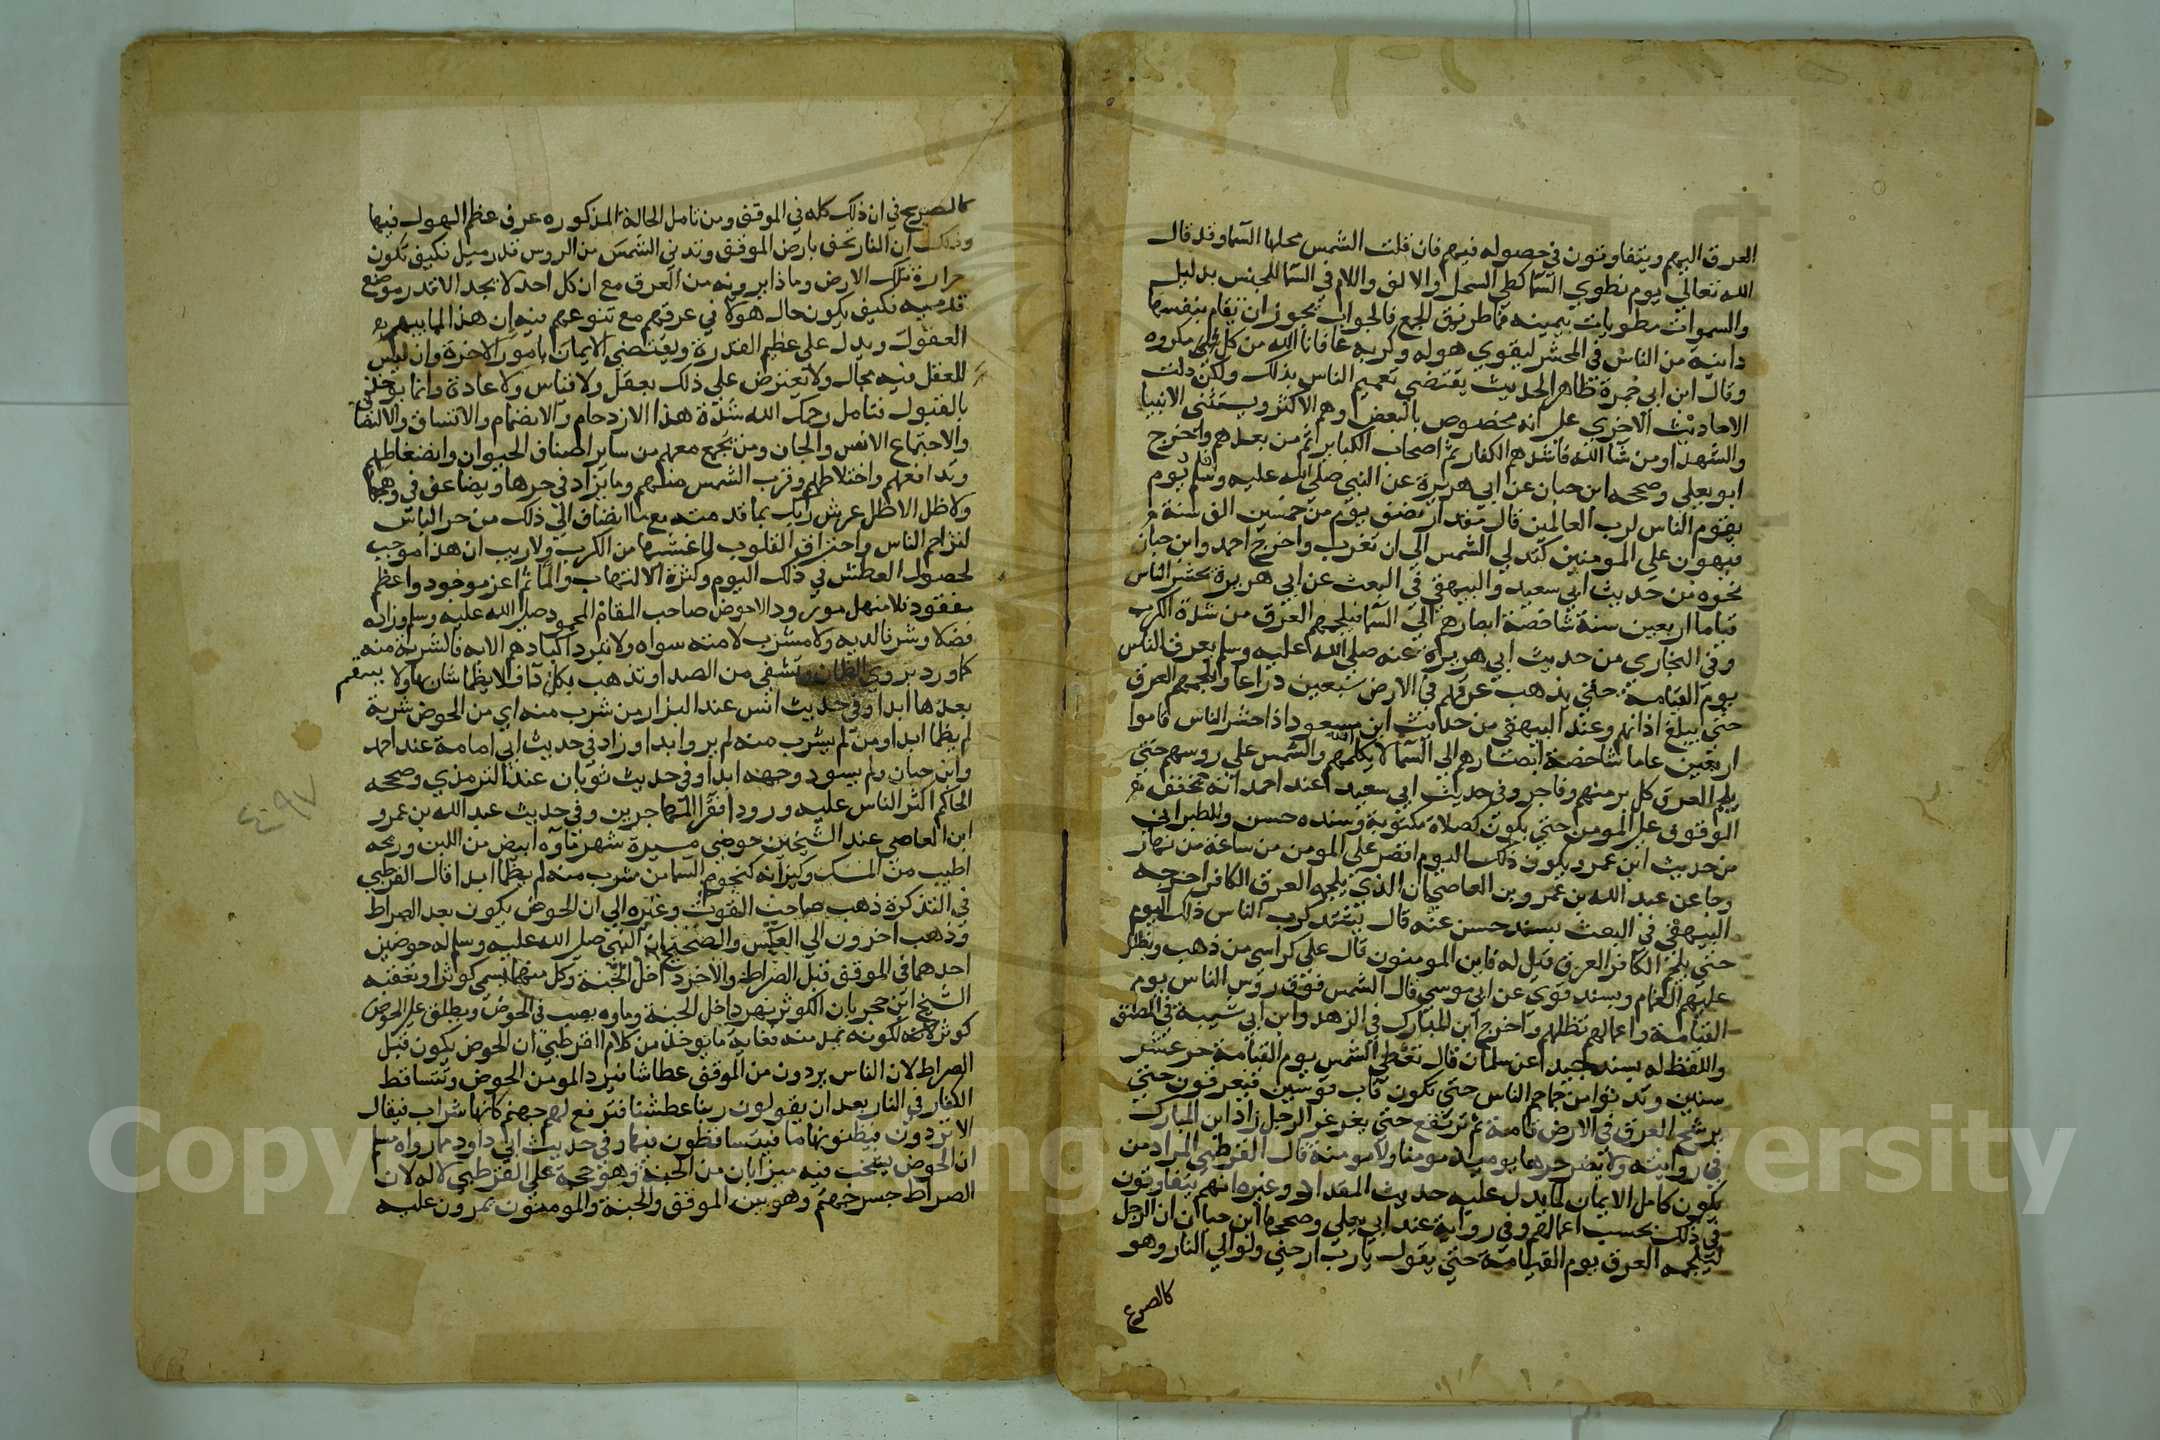 العرق اليهم ويتفاوتون في حصوله فيهم فان قلت الشمس محلها السما وقد قال
الله تعالي يوم نطوي السما كطي السجل والالف واللام في السما للجنس بدليل
والسموات مطويات بيمينه فما طريق الجمع فالجواب يجوز ان تقام بنفسها
دانية من الناس في المحشر ليقوي هوله وكربه عافانا الله من كل مكروه
وقال ابن ابي جمرة ظاهر الحديث يقتضي تعميم الناس بذلك ولكن دلت
الاحاديث الاخري علي انه مخصوص بالبعض وهم الاكثر ويستثني الانبيا
والشهدا ومن شا الله فاشدهم الكفار ثم اصحاب الكباير ثم من بعدهم واخرج
ابو يعلي وصححه ابن حبان عن ابي هريرة عن النبي صلي الله عليه وسلم يوم
يقوم الناس لرب العالمين قال مقدار نصف يوم من خمسين الف سنة
فيهون علي المومنين كتدلي الشمس الي ان تغرب واخرج احمد وابن حبان
نحوه من حديث ابي سعيد والبيهقي في البعث عن ابي هريرة يحشر الناس
قياما اربعين سنة شاخصة ابصارهم الي السما فيلجمهم العرق من شدة الكرب
وفي البخاري من حديث ابي هريرة عنه صلي الله عليه وسلم يعرق الناس
يوم القيامة حتي يذهب عرقهم في الارض سبعين ذراعا ويلجمهم العرق
حتي يبلغ اذانهم وعند البيهقي من حديث ابن مسعود اذا حشر الناس قاموا
اربعين عاما شاخصة ابصارهم الي السما لا يكلمهم والشمس علي روسهم حتي
يلجم العرق كل بر منهم وفاجر وفي حديث ابي سعيد عند احمد انه يخفف
الوقوف علي المومن حتي يكون كصلاة مكتوبة وسنده حسن وللطبراني
من حديث ابن عمر ويكون ذلك اليوم اقصر علي المومن من ساعة من نهار
وجا عن عبد الله بن عمرو بن العاصي ان الذي يلجمه العرق الكافر اخرجه
البيهقي في البعث بسند حسن عنه قال يشتد كرب الناس ذلك اليوم
حتي يلجم الكافر العرق قيل له فاين المومنون قال علي كراسي من ذهب ويظلل
عليهم الغمام وبسند قوي عن ابي موسي قال الشمس فوق روس الناس يوم
القيامة واعمالهم تظلهم واخرج ابن المبارك في الزهد وابن ابي شيبة في المصنف
واللفظ له بسند جيد عن سلمان قال تعطي الشمس يوم القيامة حر عشر
سنين وتدنوا من جماجم الناس حتي تكون قاب قوسين فيعرقون حتي
يرشح العرق في الارض قامة ثم ترتفع حتي يغرغر الرجل زاد ابن المبارك
في روايته ولا يضر حرها يوميذ مومنا ولا مومنة قال القرطبي المراد من
يكون كامل الايمان لما يدل عليه حديث المقداد وغيره انهم يتفاوتون
في ذلك بحسب اعمالهم وفي رواية عند ابي يعلي وصححها ابن حبان ان الرجل
ليلجمه العرق يوم القيامة حتي يقول يا رب ارحني ولو الي النار وهو
كالصريح
كالصريح في ان ذلك كله في الموقف ومن تامل الحالة المذكوره عرف عظم الهول فيها
وذلك ان النار تحف بارض الموقف وتدني الشمس من الروس قدر ميل فكيف تكون
حرارة تلك الارض وماذا يرويه من العرق مع ان كل احد لا يجد الا قدر موضع
قدميه فكيف يكون حال هولا في عرقهم مع تنوعهم فيه ان هذا لما يبهر
العقول ويدل علي عظم القدرة ويقتضي الايمان بامور الاخرة وان ليس
للعقل فيه مجال ولا يعترض علي ذلك بعقل ولا قياس ولا عادة وانما يوخذ
بالقبول فتامل رحمك الله شدة هذا الازدحام والانضمام والاتساق والالتفاف
والاجتماع الانس والجان ومن يجمع معهم من ساير اصناف الحيوان وانضغاطهم
وتدافعهم واختلاطهم وقرب الشمس منهم وما يزاد في حرها ويضاعف في وهجها
ولا ظل الا ظل عرش ربك بما قدمته مع ما انضاف الي ذلك من حر الباس
لتزاحم الناس واحتراق القلوب لما غشيها من الكرب ولا ريب ان هذا موجب
لحصول العطش في ذلك اليوم وكثرة الالتهاب والما ثم اعز موجود واعظم
مفقود فلا منهل مورود الا حوض صاحب المقام المحمود صلي الله عليه وسلم وزاده
فضلا وشرفا لديه ولا مشرب لامته سواه ولا تبرد اكبادهم الا به فالشربة منه
كما ورد تروي الظمان وتشفي من الصدا وتذهب بكل داء لا يظما شاربها ولا يسقم
بعدها ابدا وفي حديث انس عند البزار من شرب منه اي من الحوض شربة
لم يظما ابدا ومن لم يشرب منه لم يرو ابدا وزاد في حديث ابي امامة عند احمد
وابن حبان ولم يسود وجهه ابدا وفي حديث ثوبان عند الترمذي وصححه
الحاكم اكثر الناس عليه ورودا فقرا المهاجرين وفي حديث عبد الله بن عمرو
ابن العاصي عند الشيخين حوضي مسيرة شهر ماوه ابيض من اللبن وريحه
اطيب من المسك وكيزانه كنجوم السما من شرب منه لم يظما ابدا قال القرطبي
في التذكرة ذهب صاحب القوت وغيره الي ان الحوض يكون بعد الصراط
وذهب اخرون الي العكس والصحيح ان للنبي صلي الله عليه وسلم حوضين
احدهما في الموقف قبل الصراط والاخر داخل الجنة وكل منهما يسمي كوثرا وتعقبه
الشيخ ابن حجر بان الكوثر نهر داخل الجنة وماوه يصب في الحوض ويطلق علي الحوض
كوثرا لكونه يمد منه فغاية ما يوخذ من كلام القرطبي ان الحوض يكون قبل
الصراط لان الناس يردون من الموقف عطاشا فيرد المومن الحوض وتتساقط
الكفار في النار بعد ان يقولون ربنا عطشنا فترفع لهم جهنم كانها سراب فيقال
الا تردون فيظنونها ما فيتساقطون فيها وفي حديث ابي داود مما رواه مسلم
ان الحوض يشخب فيه ميزابان من الجنة وهو حجة علي القرطبي لا له لان
الصراط جسر جهنم وهو بين الموقف والجنة والمومنون يمرون عليه
٤٠٩٧
Copy
ng
versity